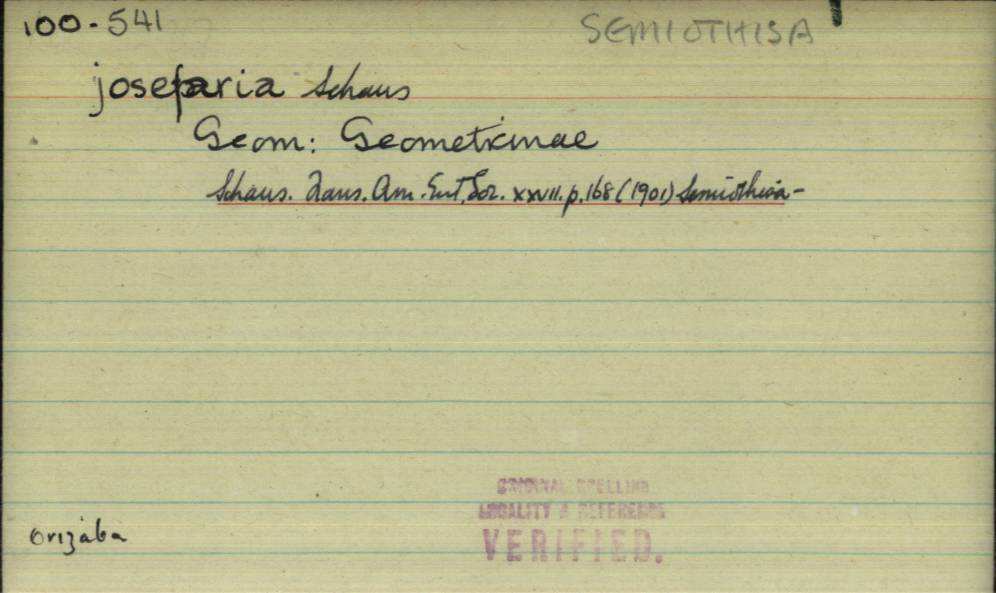 100-541
SEMIOTHISA
josefaria Schaus
Geom: Geometrinae
Schaus. Trans. Am. Ent. Soc. XXVII. p.168 (1901) Semiothisa-
ORIGINAL SPELLING
LOCALITY & REFERENCE
VERIFIED.
Orizaba